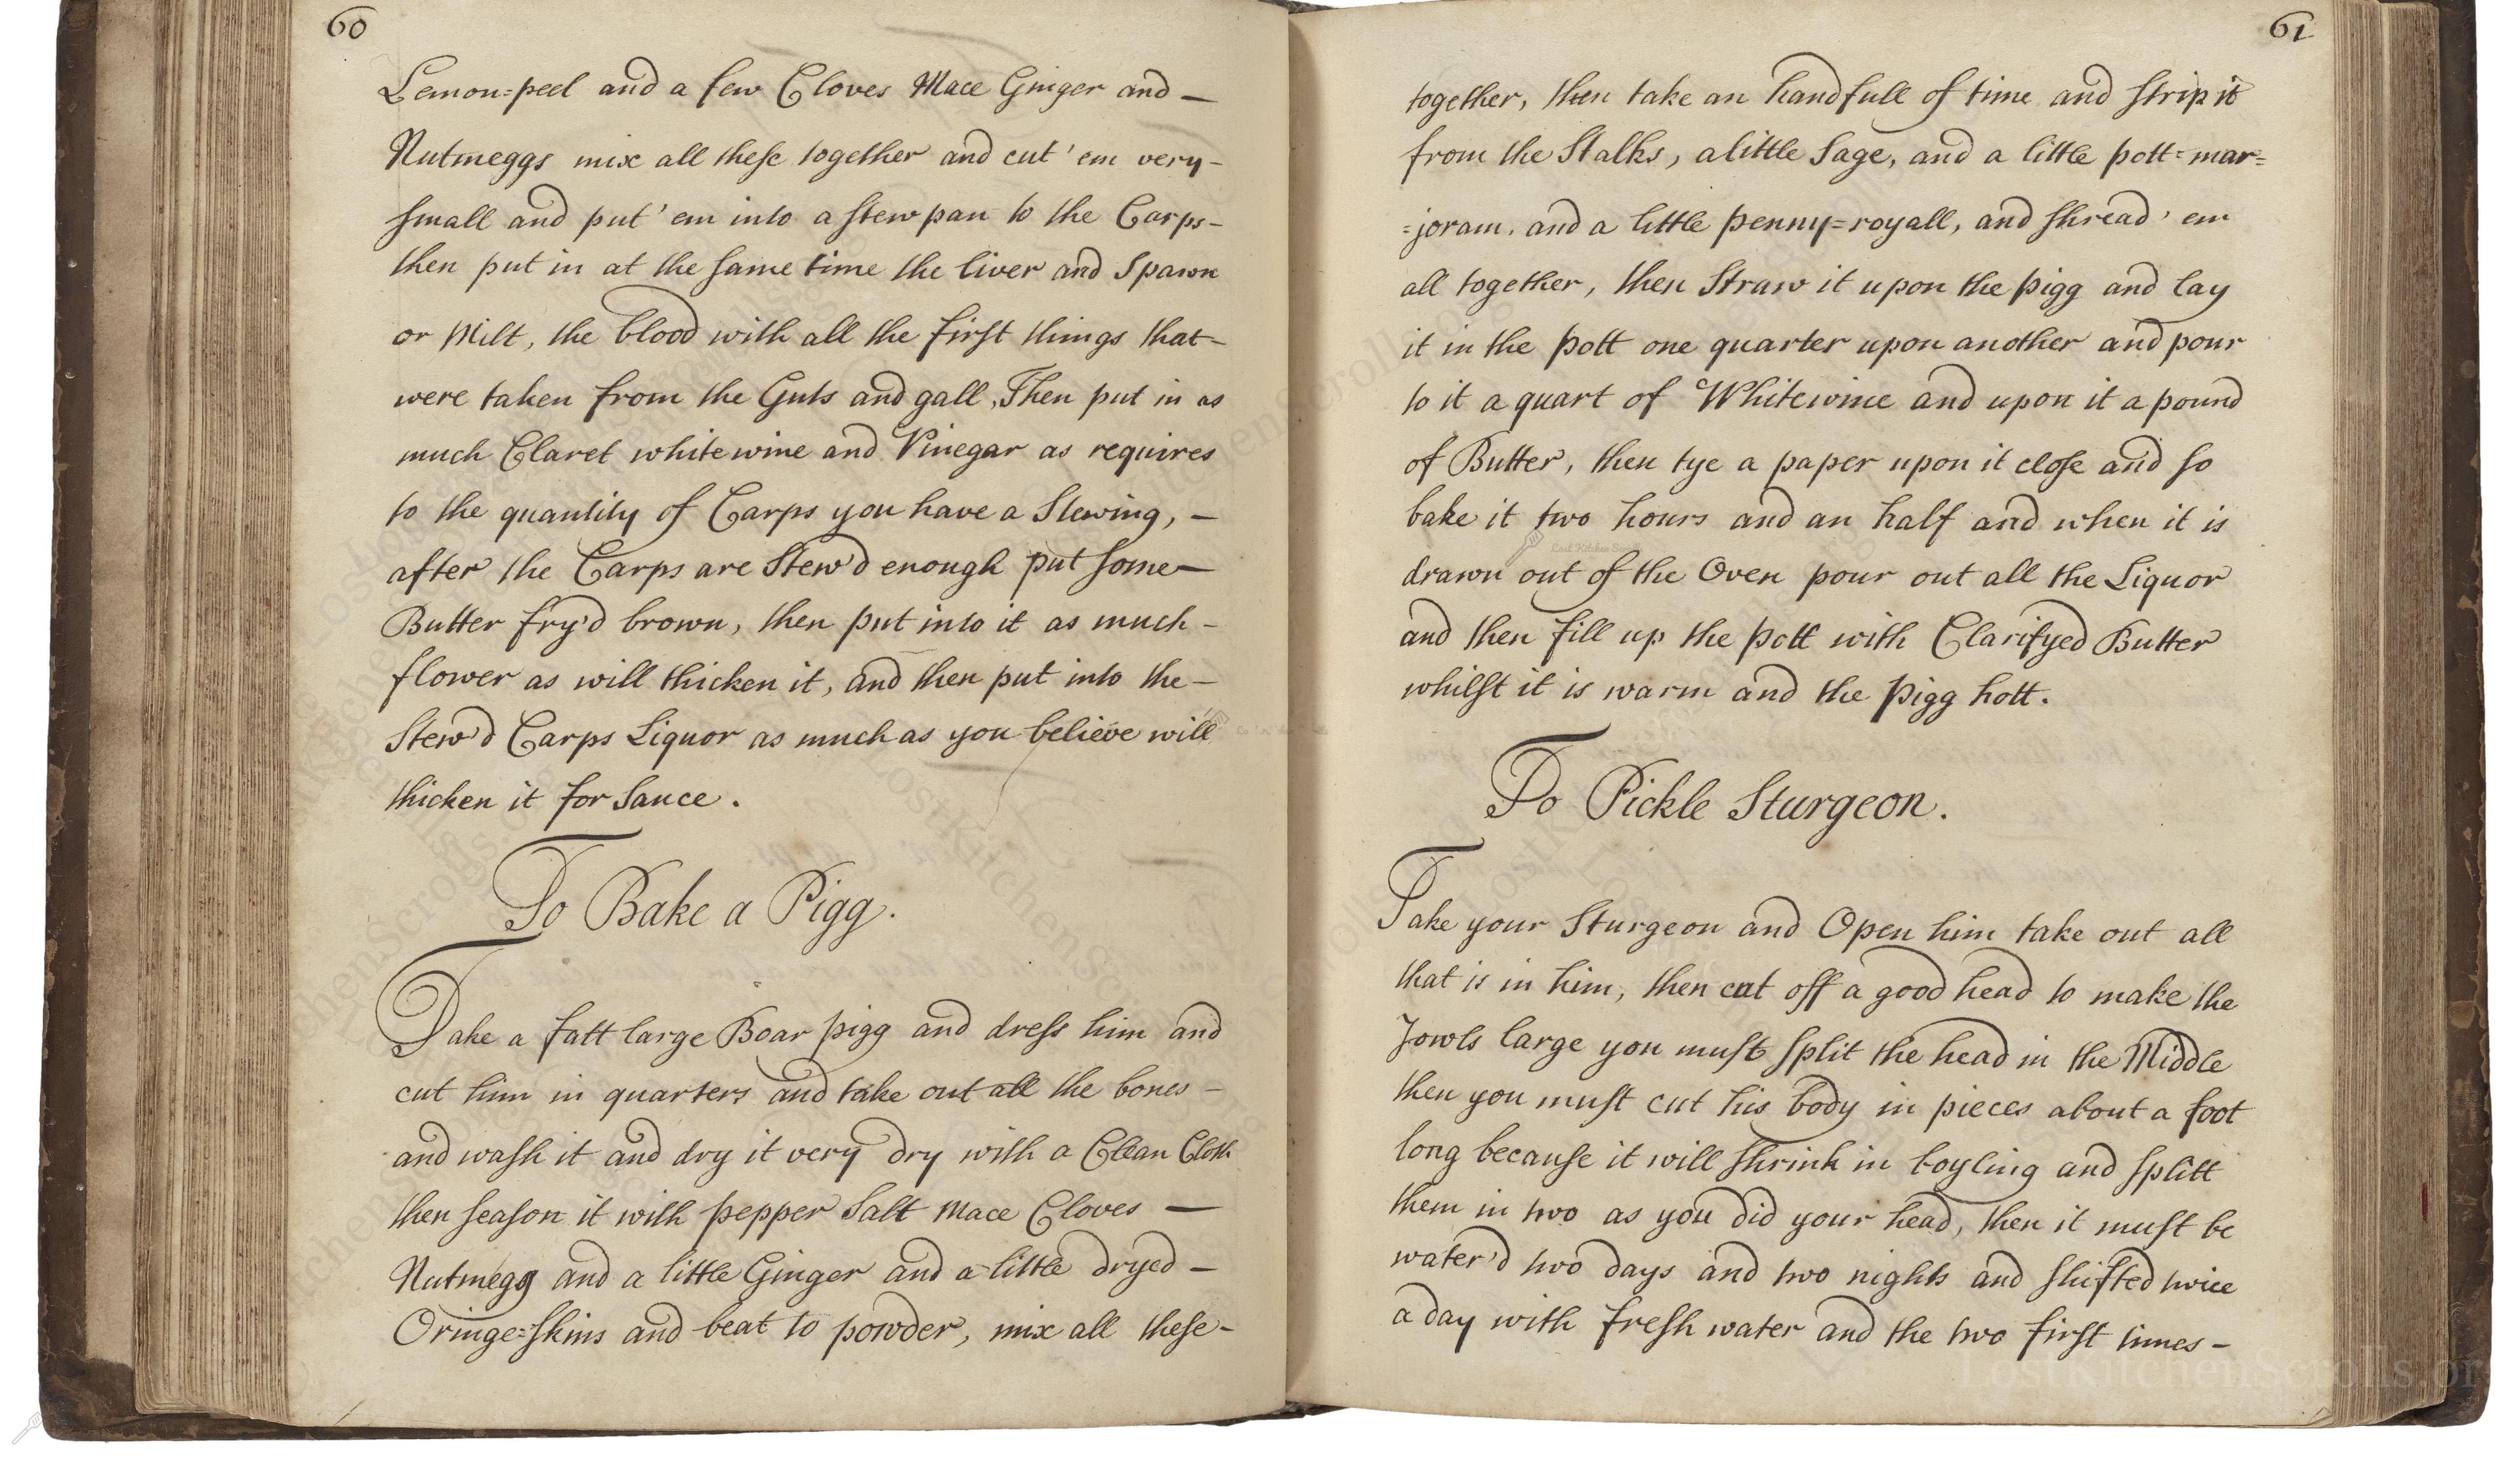 60
Lemon=peel and a few Cloves Mace Ginger and –
Nutmeggs mix all these together and cut 'em very –
small and put 'em into a stew pan to the Carps –
then put in at the same time the liver and Spawn
or Milt, the blood with all the first things that –
were taken from the Guts and gall, Then put in as
much Claret whitewine and Vinegar as requires
to the quantity of Carps you have a Stewing, –
after the Carps are Stew'd enough put some –
Butter fry'd brown, then put into it as much –
flower as will thicken it, and then put into the –
Stew'd Carps Liquor as much as you believe will
thicken it for Sauce.
To Bake a Pigg.
Take a fatt large Boar pigg and dress him and
cut him in quarters and take out all the bones –
and wash it and dry it very dry with a Clean Cloth
then season it with pepper Salt Mace Cloves –
Nutmegg and a little Ginger and a little dryed –
Oringe=skins and beat to powder, mix all these –
61
together, then take an handfull of time and strip it
from the Stalks, a little Sage, and a little pott=mar=
=joram, and a little penny=royall, and shread 'em
all together, then Straw it upon the pigg and lay
it in the pott one quarter upon another and pour
to it a quart of Whitewine and upon it a pound
of Butter, then tye a paper upon it close and so
bake it two hours and an half and when it is
drawn out of the Oven pour out all the Liquor
and then fill up the pott with Clarifyed Butter
whilst it is warm and the pigg hott.
To Pickle Sturgeon.
Take your Sturgeon and Open him take out all
that is in him, then cut off a good head to make the
Jowls large you must split the head in the Middle
then you must cut his body in pieces about a foot
long because it will shrink in boyling and splitt
them in two as you did your head, then it must be
water'd two days and two nights and shifted twice
a day with fresh water and the two first times –
LostKitchenScrolls.or